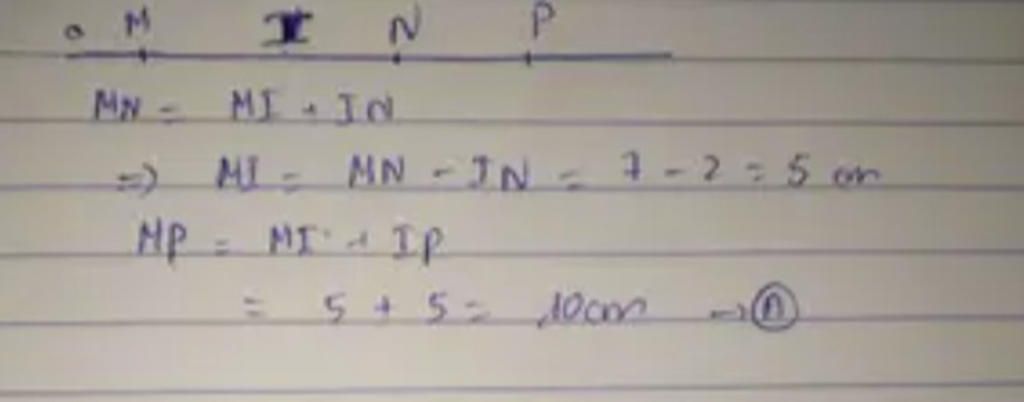 M I N P
MN = MI + IN
=> MI = MN - IN = 7 - 2 = 5 cm
MP = MI + IP
= 5 + 5 = 10cm → Ⓐ